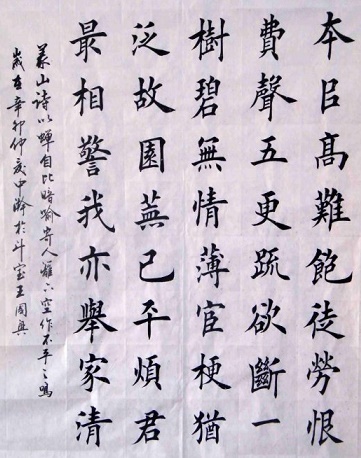 本㠯髙難飽徒勞恨
費聲五更疏欲斷一
樹碧無情薄宦梗猶
泛故園蕪已平煩君
最相警我亦舉家清
義山詩以蟬自比暗喻寄人籬下空作不平之鳴
歲在辛卯仲夏中澣於斗室王